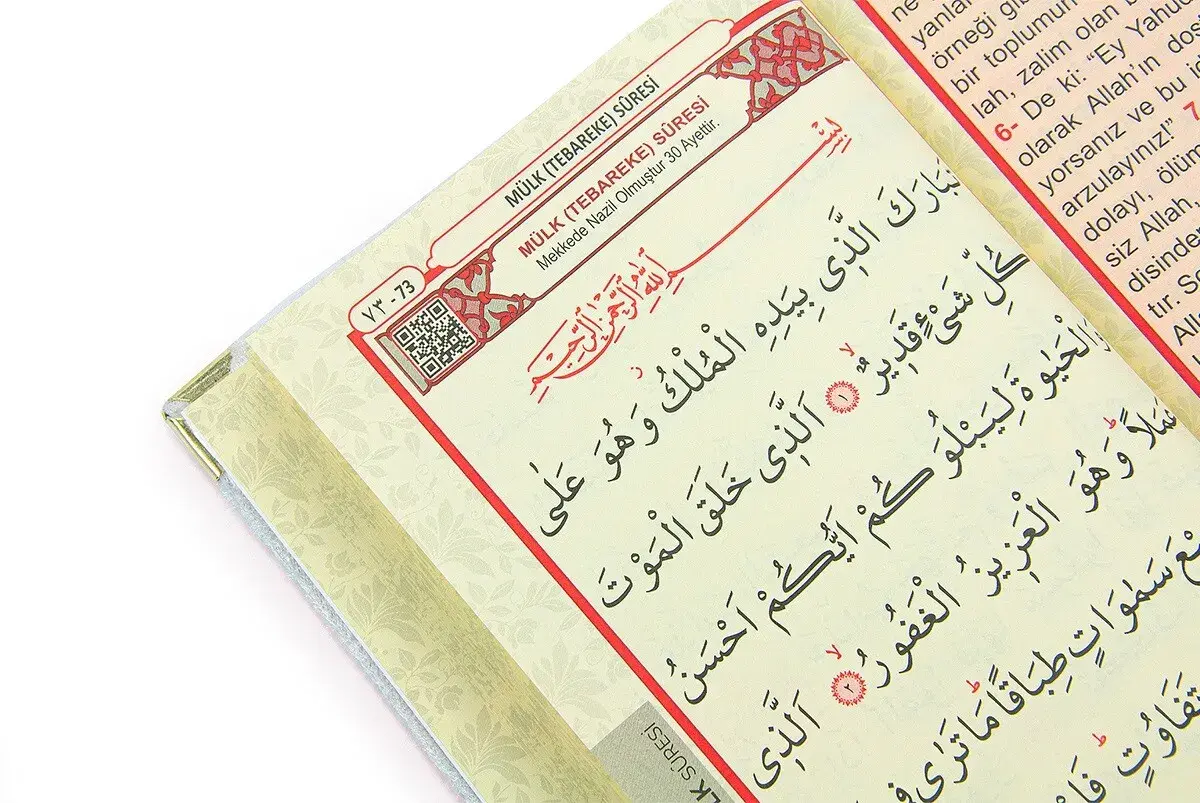 MÜLK (TEBAREKE) SÛRESİ
٧٣ - 73
MÜLK (TEBAREKE) SÛRESİ
Mekkede Nazil Olmuştur 30 Ayettir.
بِسْمِ اللّٰهِ الرَّحْمٰنِ الرَّحِيمِ
تَبَارَكَ الَّذٖى بِيَدِهِ الْمُلْكُ وَهُوَ عَلٰى
كُلِّ شَیْءٍ قَدٖيرٌۙ ﴿١﴾ اَلَّذٖى خَلَقَ الْمَوْتَ
وَالْحَيٰوةَ لِيَبْلُوَكُمْ اَيُّكُمْ اَحْسَنُ
عَمَلاًؕ وَهُوَ الْعَزٖيزُ الْغَفُورُۙ ﴿٢﴾ اَلَّذٖى
سَمٰوَاتٍ طِبَاقًاؕ مَا تَرٰى
تَفَاوُتٍؕ
SÛRESİ
yanları
örneği
bir toplumun
lah, zalim olan
6- De ki: “Ey Yahud
olarak Allah'ın dos
yorsanız ve bu
arzulayınız!” 7
dolayı, ölüm
siz Allah,
disinden
tır.